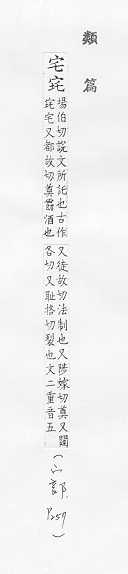 類篇
宅
楊伯切說文所託也古作
宅又都故切奠爵酒也
又徒故切法制也又陟嫁切奠又闥
各切又恥格切裂也文二重音五
(宀部, P257)